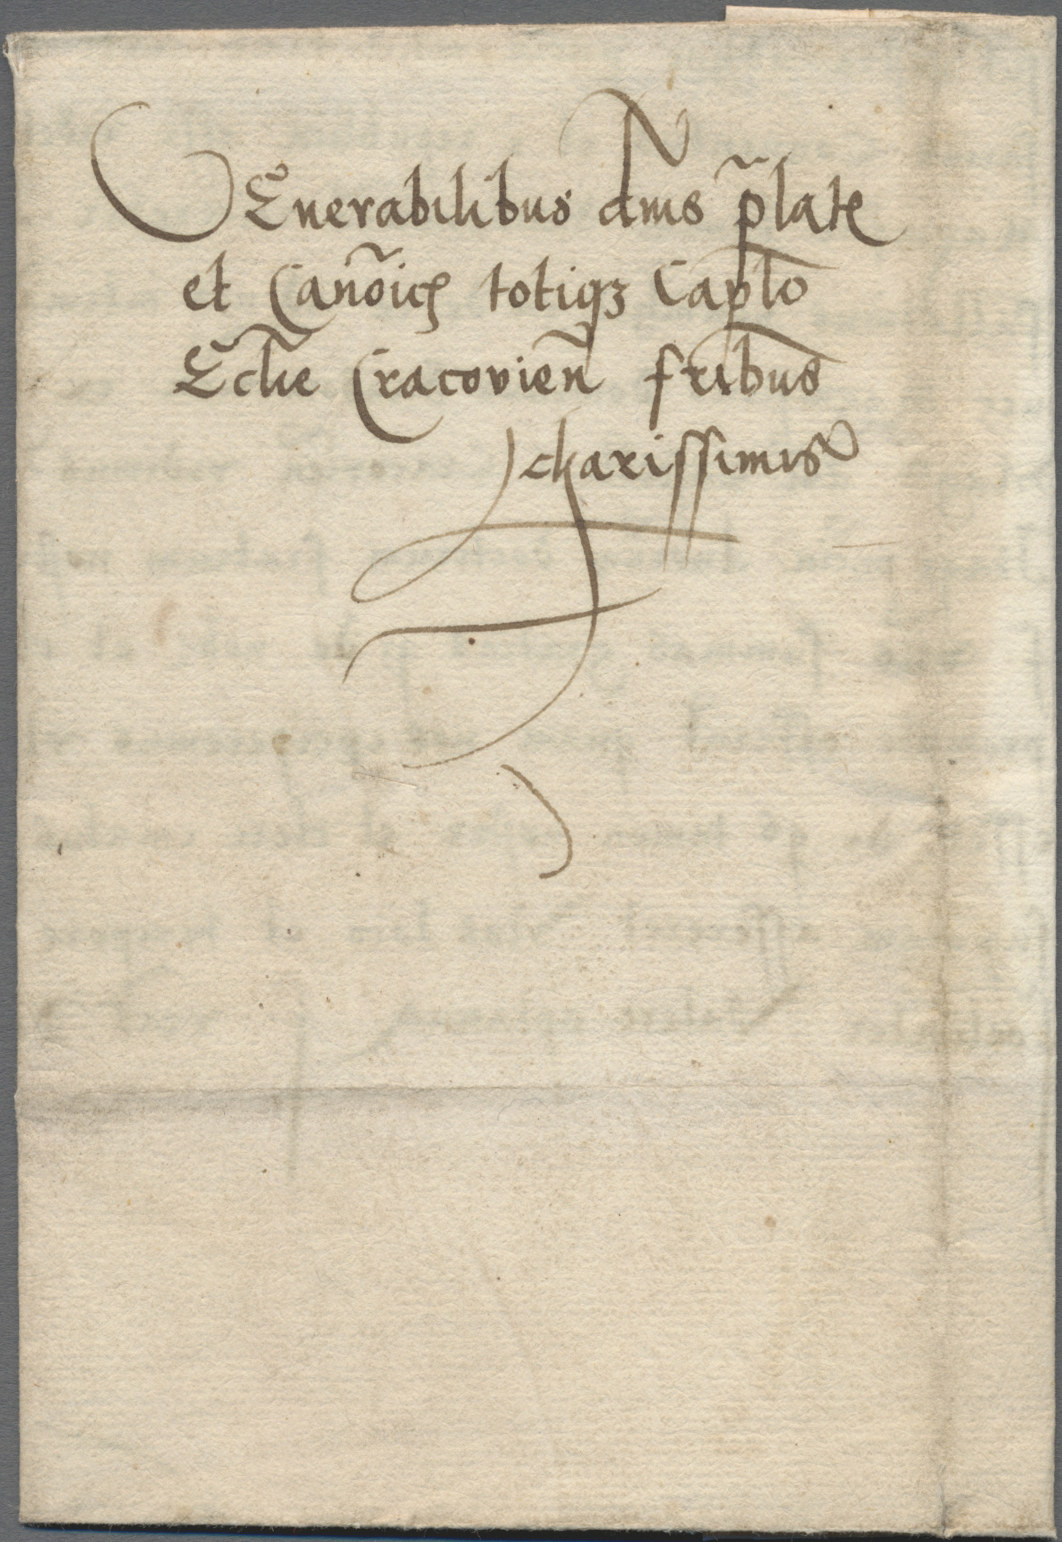 VEnerabilibus dnis p̃latẽ
et Canõicꝭ totiqꝫ Caplo
Eccl̃ie Cracovien̄ fribus
charissimis